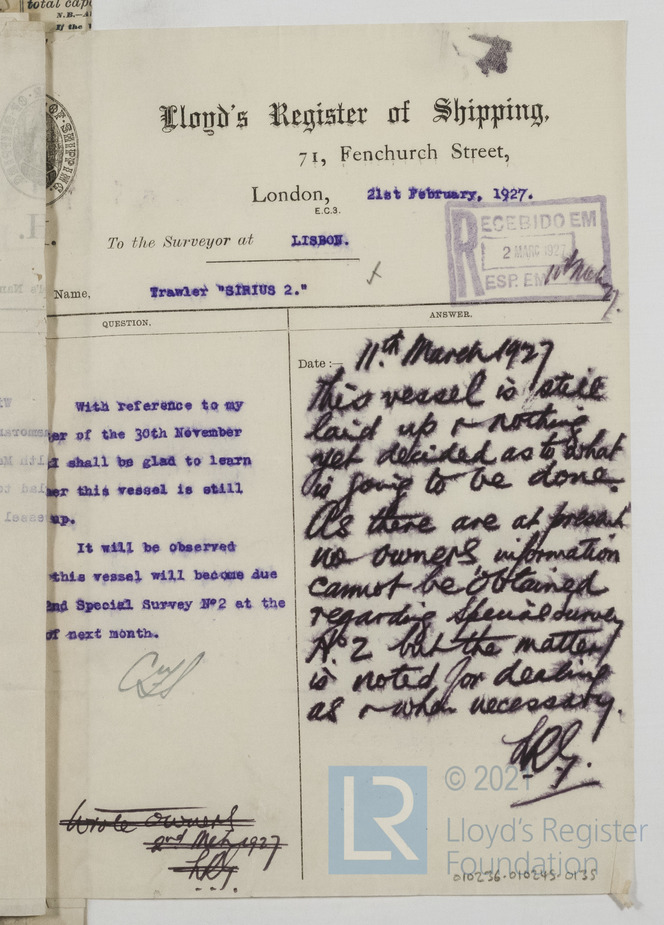 total cap
N.B.—A
If the
Lloyd's Register of Shipping,
71, Fenchurch Street,
London, 21st February, 1927.
E.C.3.
To the Surveyor at LISBON.
RECEBIDO EM
2 MARÇ 1927
RESP. EM 11th Mch 27.
Name, Trawler "SIRIUS 2."
QUESTION.
ANSWER.
With reference to my
er of the 30th November
I shall be glad to learn
her this vessel is still
up.
It will be observed
this vessel will become due
2nd Special Survey Nº2 at the
of next month.
Wrote Owners
2nd Mch 1927
Date :— 11th March 1927
This vessel is still
laid up & nothing
yet decided as to what
is going to be done.
As there are at present
no owners, information
cannot be obtained
regarding Special Survey
Nº 2 but the matter
is noted for dealing
as & when necessary.
© 2021
Lloyd's Register
Foundation
LR
010236-010245-0135